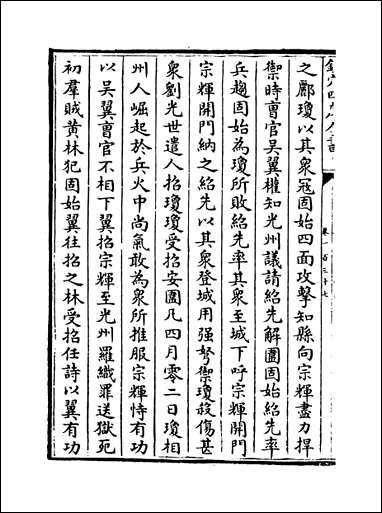 之酈瓊以其衆冦固始四面攻擊知縣向宗輝盡力捍
禦時曹官吳翼權知光州議請紹先解圍固始紹先率
兵趨固始為瓊所敗紹先率其衆至城下呼宗輝開門
宗輝開門納之紹先以其衆登城用强弩禦瓊殺傷甚
衆劉光世遣人招瓊瓊受招安圍凡四月零二日瓊相
州人崛起於兵火中尚氣敢為衆所推服宗輝恃有功
以吳翼曹官不相下翼招宗輝至光州羅織罪送獄死
初羣賊黄林犯固始翼往招之林受招任詩以翼有功